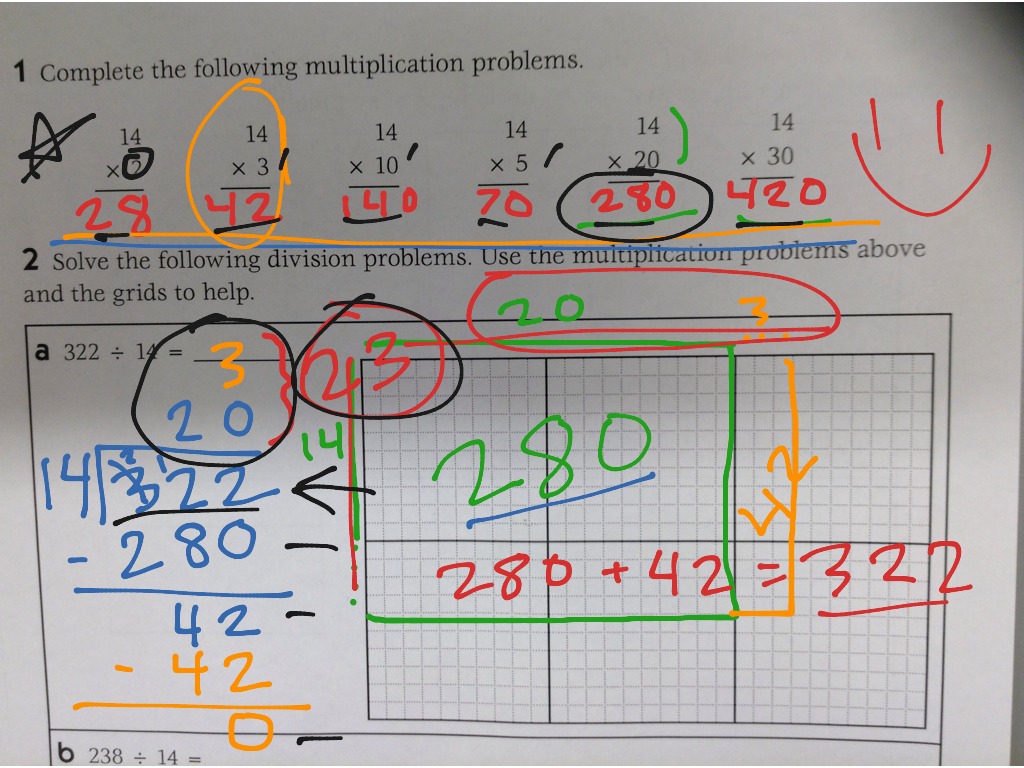 1 Complete the following multiplication problems.
14 14 14 14 14 14
× 2 × 3 × 10 × 5 × 20 × 30
28 42 140 70 280 420
2 Solve the following division problems. Use the multiplication problems above
and the grids to help.
20 3
a 322 ÷ 14 =
3
23
20
14
14 322
280
- 280
42
280 + 42 = 322
42
- 42
0
b 238 ÷ 14 =